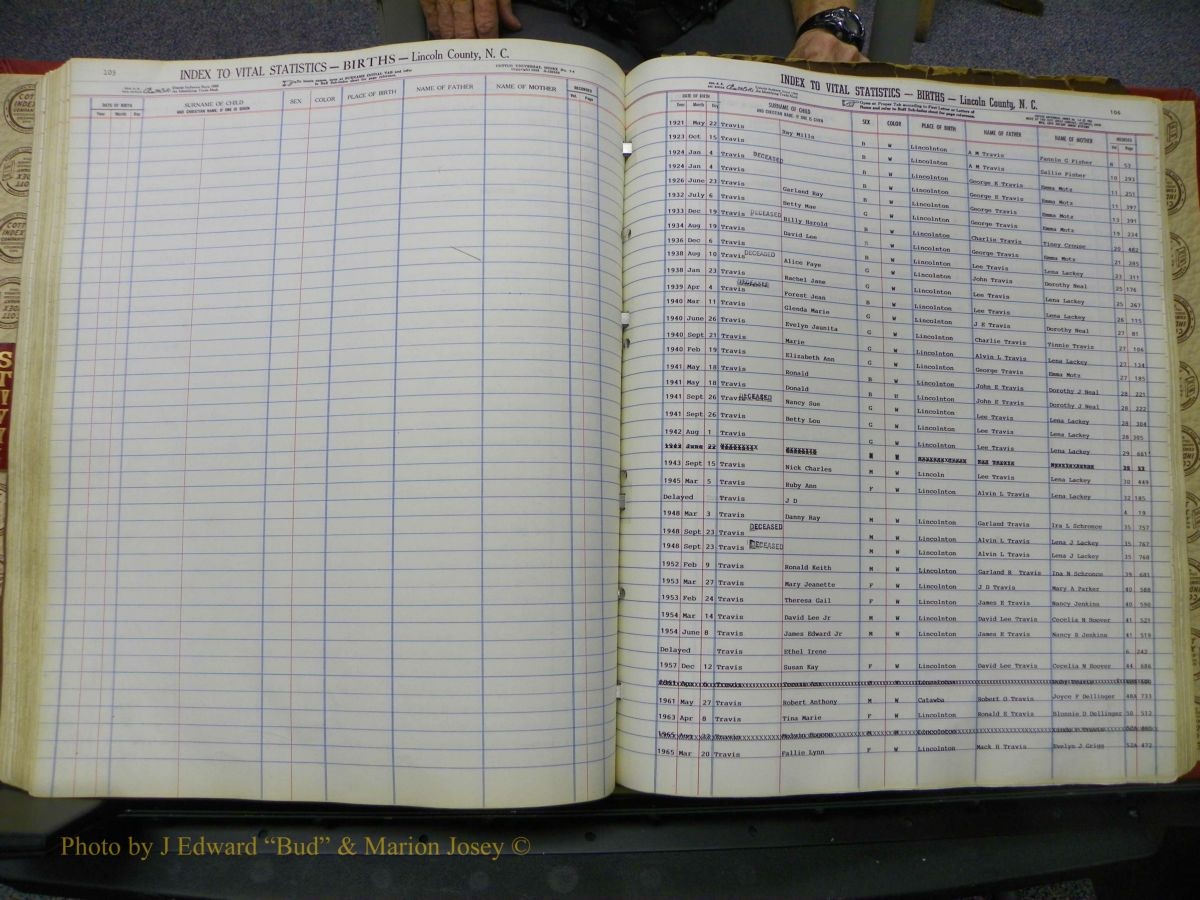 109
INDEX TO VITAL STATISTICS — BIRTHS — Lincoln County, N. C.
DATE OF BIRTH
Year Month Day
SURNAME OF CHILD
AND CHRISTIAN NAME, IF ONE IS GIVEN
SEX
COLOR
PLACE OF BIRTH
NAME OF FATHER
NAME OF MOTHER
RECORDED
Vol. Page
INDEX TO VITAL STATISTICS — BIRTHS — Lincoln County, N. C.
DATE OF BIRTH
Year Month Day
SURNAME OF CHILD
AND CHRISTIAN NAME, IF ONE IS GIVEN
SEX
COLOR
PLACE OF BIRTH
NAME OF FATHER
NAME OF MOTHER
RECORDED
Vol. Page
1921 May 22 Travis Ray Mills B W Lincolnton A M Travis Fannie G Fisher
1923 Oct 15 Travis B W Lincolnton A M Travis Sallie Fisher 10 293
1924 Jan 4 Travis DECEASED B W Lincolnton George E Travis Emma Motz 11 251
1924 Jan 4 Travis B W Lincolnton George E Travis Emma Motz 11 397
1926 June 23 Travis Garland Ray B W Lincolnton George Travis Emma Motz 13 391
1932 July 6 Travis Betty Mae G W Lincolnton George Travis Emma Motz 19 234
1933 Dec 19 Travis DECEASED Billy Harold B W Lincolnton Charlie Travis Tiney Crouse 20 482
1934 Aug 19 Travis David Lee W Lincolnton George Travis Emma Motz 21 205
1936 Dec 6 Travis B W Lincolnton Lee Travis Lena Lackey 23 311
1938 Aug 10 Travis DECEASED Alice Faye G W Lincolnton John Travis Dorothy Neal 25 176
1938 Jan 23 Travis Rachel Jane G W Lincolnton Lee Travis Lena Lackey 25 267
1939 Apr 4 Travis DECEASED Forest Jean B W Lincolnton Lee Travis Lena Lackey 26 115
1940 Mar 11 Travis Glenda Marie G W Lincolnton J E Travis Dorothy Neal 27 81
1940 June 26 Travis Evelyn Jaunita G W Lincolnton Charlie Travis Tinnie Travis 27 106
1940 Sept 21 Travis Marie G W Lincolnton Alvin L Travis Lena Lackey 27 134
1940 Feb 19 Travis Elizabeth Ann G W Lincolnton George Travis Emma Motz 27 185
1941 May 18 Travis Ronald B W Lincolnton John E Travis Dorothy J Neal 28 221
1941 May 18 Travis Donald B W Lincolnton John E Travis Dorothy J Neal 28 222
1941 Sept 26 Travis DECEASED Nancy Sue G W Lincolnton Lee Travis Lena Lackey 28 304
1941 Sept 26 Travis Betty Lou G W Lincolnton Lee Travis Lena Lackey 28 305
1942 Aug 1 Travis G W Lincolnton Lee Travis Lena Lackey 29 661
1943 June 22
1943 Sept 15 Travis Nick Charles M W Lincoln Lee Travis Lena Lackey 30 449
1945 Mar 5 Travis Ruby Ann F W Lincolnton Alvin L Travis Lena Lackey 32 185
Delayed Travis J D 4 19
1948 Mar 3 Travis Danny Ray M W Lincolnton Garland Travis Ira L Schronce 35 757
1948 Sept 23 Travis DECEASED M W Lincolnton Alvin L Travis Lena J Lackey 35 767
1948 Sept 23 Travis DECEASED M W Lincolnton Alvin L Travis Lena J Lackey 35 768
1952 Feb 9 Travis Ronald Keith M W Lincolnton Garland R Travis Ina N Schronce 39 681
1953 Mar 27 Travis Mary Jeanette F W Lincolnton J D Travis Mary A Parker 40 588
1953 Feb 24 Travis Theresa Gail F W Lincolnton James E Travis Nancy Jenkins 40 590
1954 Mar 14 Travis David Lee Jr M W Lincolnton David Lee Travis Cecelia N Hoover 41 521
1954 June 8 Travis James Edward Jr M W Lincolnton James E Travis Nancy B Jenkins 41 519
Delayed Travis Ethel Irene 6 242
1957 Dec 12 Travis Susan Kay F W Lincolnton David Lee Travis Cecelia N Hoover 44 686
1961 May 27 Travis Robert Anthony M W Catawba Robert O Travis Joyce F Dellinger 48A 733
1963 Apr 8 Travis Tina Marie F W Lincolnton Ronald E Travis Blonnie D Dellinger 50 512
1965 Aug 22 Travis Melvin Eugene
1965 Mar 20 Travis Pallie Lynn F W Lincolnton Mack H Travis Evelyn J Grigg 52A 472
Photo by J Edward “Bud” & Marion Josey ©